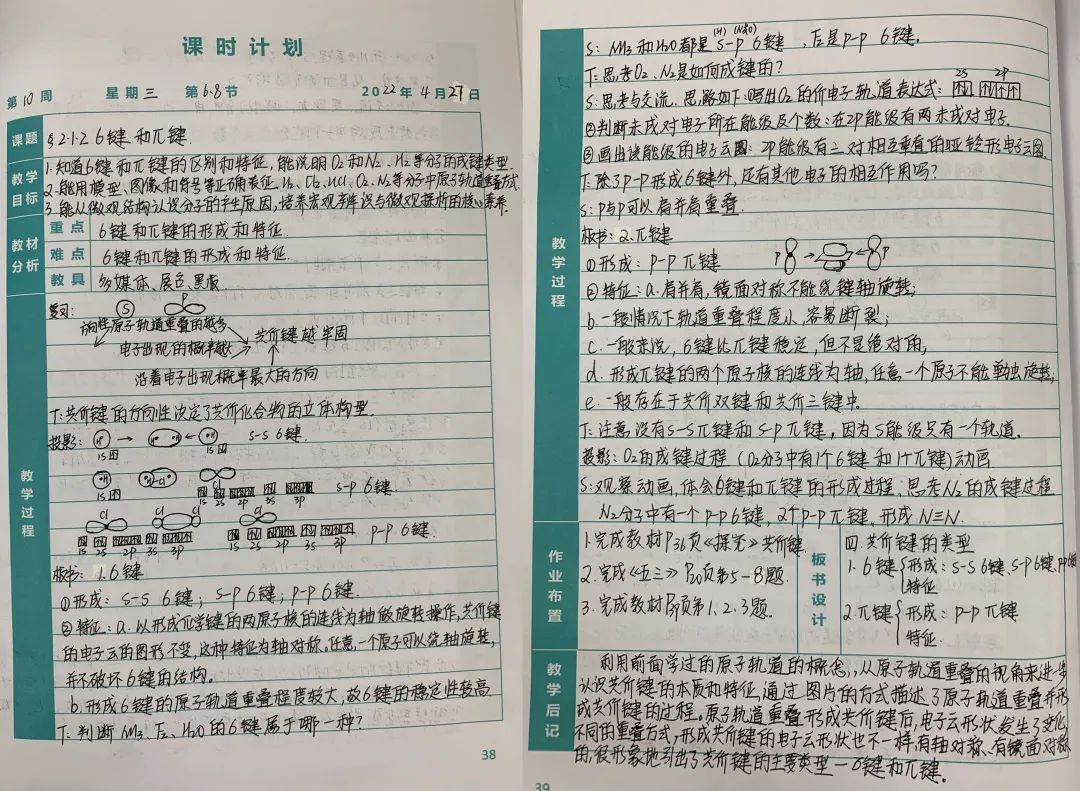 课时计划
第10周 星期三 第6.8节 2022年4月27日
课题 §2·1·2 6键和π键.
教学目标 1.知道6键和π键的区别和特征,能说明O2和N2、H2等分子的成键类型
2.能用模型、图像和符号等正确表征H2、Cl2、HCl、O2、N2等分子中原子轨道重叠方式.
3.能从微观结构认识分子的产生原因,培养宏观辨识与微观探析的核心素养.
教材分析
重点 6键和π键的形成和特征.
难点 6键和π键的形成和特征.
教具 多媒体、展台、黑板
教学过程
复习: S P
方向性原子轨道重叠的越多
电子出现的概率越大 共价键越牢固
沿着电子出现概率最大的方向
T:共价键的方向性决定了共价化合物的立体构型.
投影: H· → H· ·H ← ·H s-s 6键.
1S 1S
·H H·Cl· Cl
1S 1S 2S 2P 3S 3P s-p 6键.
Cl Cl Cl
1S 2S 2P 3S 3P 1S 2S 2P 3S 3P p-p 6键
板书: 1.6键
①形成: s-s 6键; s-p 6键; p-p 6键.
②特征: a.以形成化学键的两原子核的连线为轴做旋转操作,共价键
的电子云的图形不变,这种特征为轴对称.任意一个原子可以绕轴旋转,
并不破坏6键的结构.
b.形成6键的原子轨道重叠程度较大,故6键的稳定性较高.
T:判断NH3、F2、H2O的6键属于哪一种?
38
S: NH3和H2O都是s-p 6键,F2是p-p 6键.
T:思考O2、N2是如何成键的?
S:思考与交流.思路如下:①写出O2的价电子轨道表达式: 2S 2P
②判断未成对电子所在能级及个数:在2P能级有两未成对电子.
③画出该能级的电子云图: 2P能级有三对相互垂直的哑铃形电子云图.
T.除了p-p形成6键外,还有其他电子的相互作用吗?
S:p与p可以肩并肩重叠.
板书: 2.π键
①形成: p-p π键 P → ← P
②特征: a.肩并肩,镜面对称不能绕键轴旋转;
b.一般情况下轨道重叠程度小,容易断裂;
c.一般来说,6键比π键稳定,但不是绝对的,
d.形成π键的两个原子核的连线为轴,任意一个原子不能单独旋转;
e.一般存在于共价双键和共价三键中.
T:注意没有s-s π键和s-p π键,因为s能级只有一个轨道.
投影:O2的成键过程(O2分子中有1个6键和1个π键)动画
S:观察动画,体会6键和π键的形成过程.思考N2的成键过程
N2分子中有一个p-p 6键,2个p-p π键.形成N≡N.
教学过程
作业布置
1.完成教材P36页《探究》共价键.
2.完成《五三》P30页第5-8题.
3.完成教材 页第1、2、3题.
板书设计
四.共价键的类型
1.6键{形成: s-s 6键、s-p 6键、p-p 6键
特征
2.π键{形成: p-p π键
特征.
教学后记
利用前面学过的原子轨道的概念,从原子轨道重叠的视角来进一步
认识共价键的本质和特征,通过图片的方式描述了原子轨道重叠并形
成共价键的过程。原子轨道重叠形成共价键后,电子云形状发生了变化,
不同的重叠方式,形成共价键的电子云形状也不一样,有轴对称、有镜面对称
的,很形象地引出了共价键的主要类型—6键和π键。
39